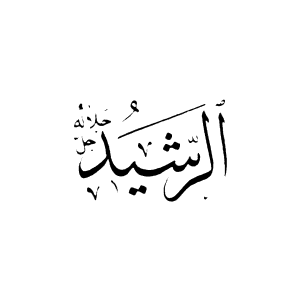 الرَّشِيدُ
جل جلاله